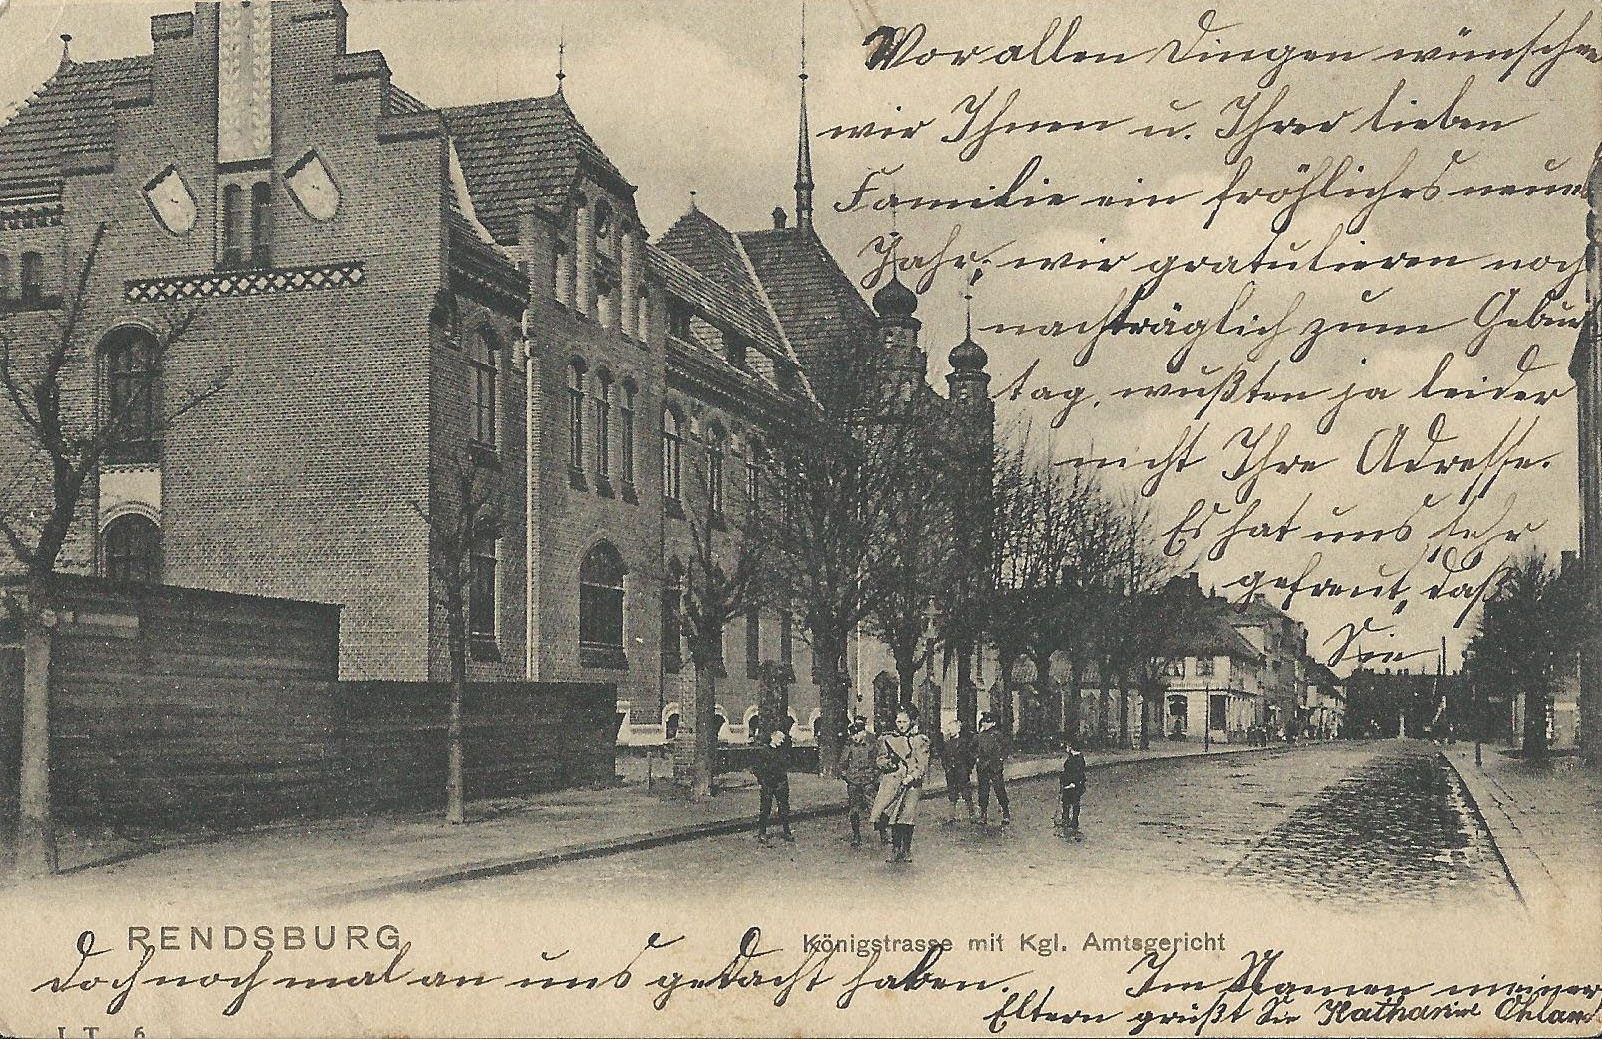 Vor allen Dingen wünschen
wir Ihnen u. Ihrer lieben
Familie ein fröhliches neues
Jahr; wir gratulieren noch
nachträglich zum Geburts
tag, wußten ja leider
nicht Ihre Adresse.
Es hat uns sehr
gefreut, daß
Sie
RENDSBURG
Königstrasse mit Kgl. Amtsgericht
doch noch mal an uns gedacht haben.
Im Namen meiner
Eltern grüßt Sie Katharine
J. T. 6